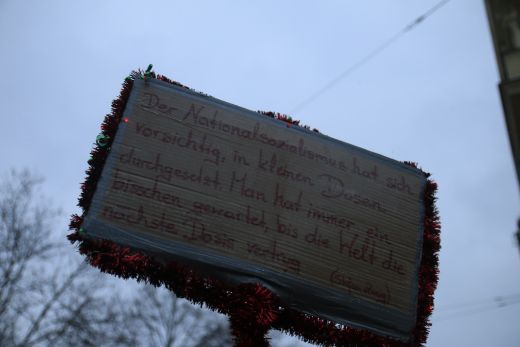 Der Nationalsozialismus hat sich
vorsichtig, in kleinen Dosen
durchgesetzt. Man hat immer ein
bisschen gewartet, bis die Welt die
nächste Dosis vertrug